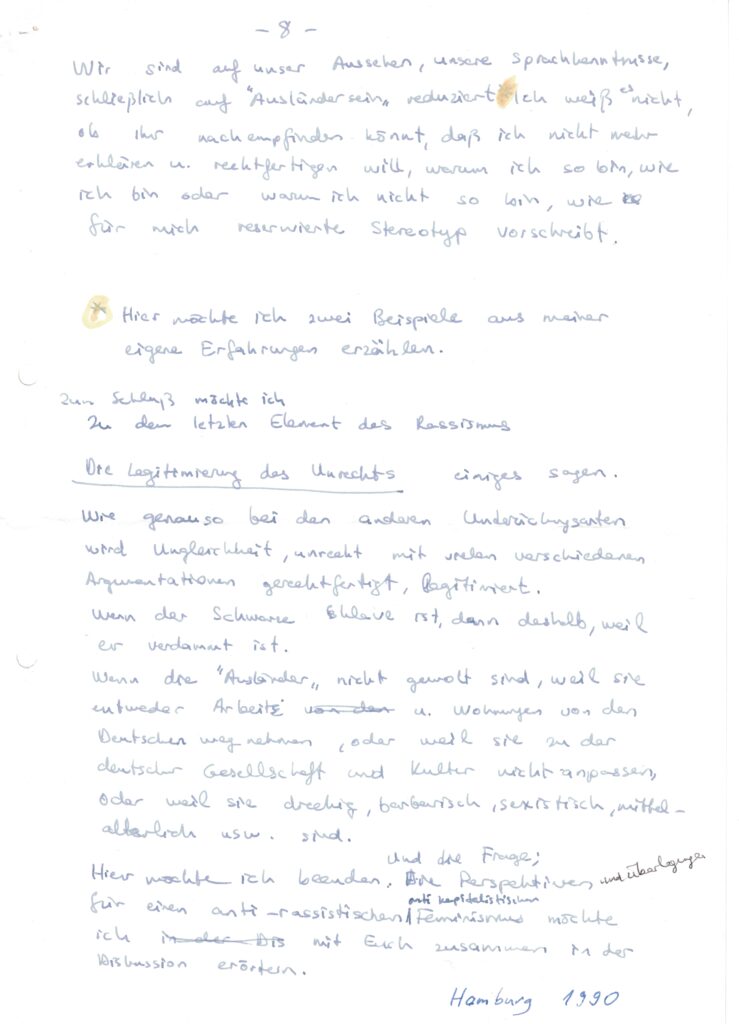 - 8 -
Wir sind auf unser Aussehen, unsere Sprachkenntnisse,
schließlich auf "Ausländersein„ reduziert * Ich weiß es nicht,
ob Ihr nachempfinden könnt, daß ich nicht mehr
erklären u. rechtfertigen will, warum ich so bin, wie
ich bin oder warum ich nicht so bin, wie
für mich reservierte Stereotyp vorschreibt.
* Hier möchte ich zwei Beispiele aus meiner
eigene Erfahrungen erzählen.
Zum Schluß möchte ich
zu dem letzten Element des Rassismus
Die Legitimierung des Unrechts einiges sagen.
Wie genauso bei den anderen
wird Ungleichheit, unrecht mit vielen verschiedenen
Argumentationen gerechtfertigt, legitimiert.
Wenn der Schwarze Sklave ist, dann deshalb, weil
er verdammt ist.
Wenn die "Ausländer„ nicht gewolt sind, weil sie
entweder Arbeit von den u. Wohnungen von den
Deutschen weg nehmen, oder weil sie zu der
deutscher Gesellschaft und Kultur nicht anpassen,
oder weil sie dreckig, barbarisch, sexistisch, mittel-
alterlich usw. sind.
Und die Frage;
Hier möchte ich beenden. Die Perspektiven und Überlegungen
anti kapitalistischen
für einen anti-rassistischen / Feminismus möchte
ich in der Dis mit Euch zusammen in der
Diskussion erörtern.
Hamburg 1990